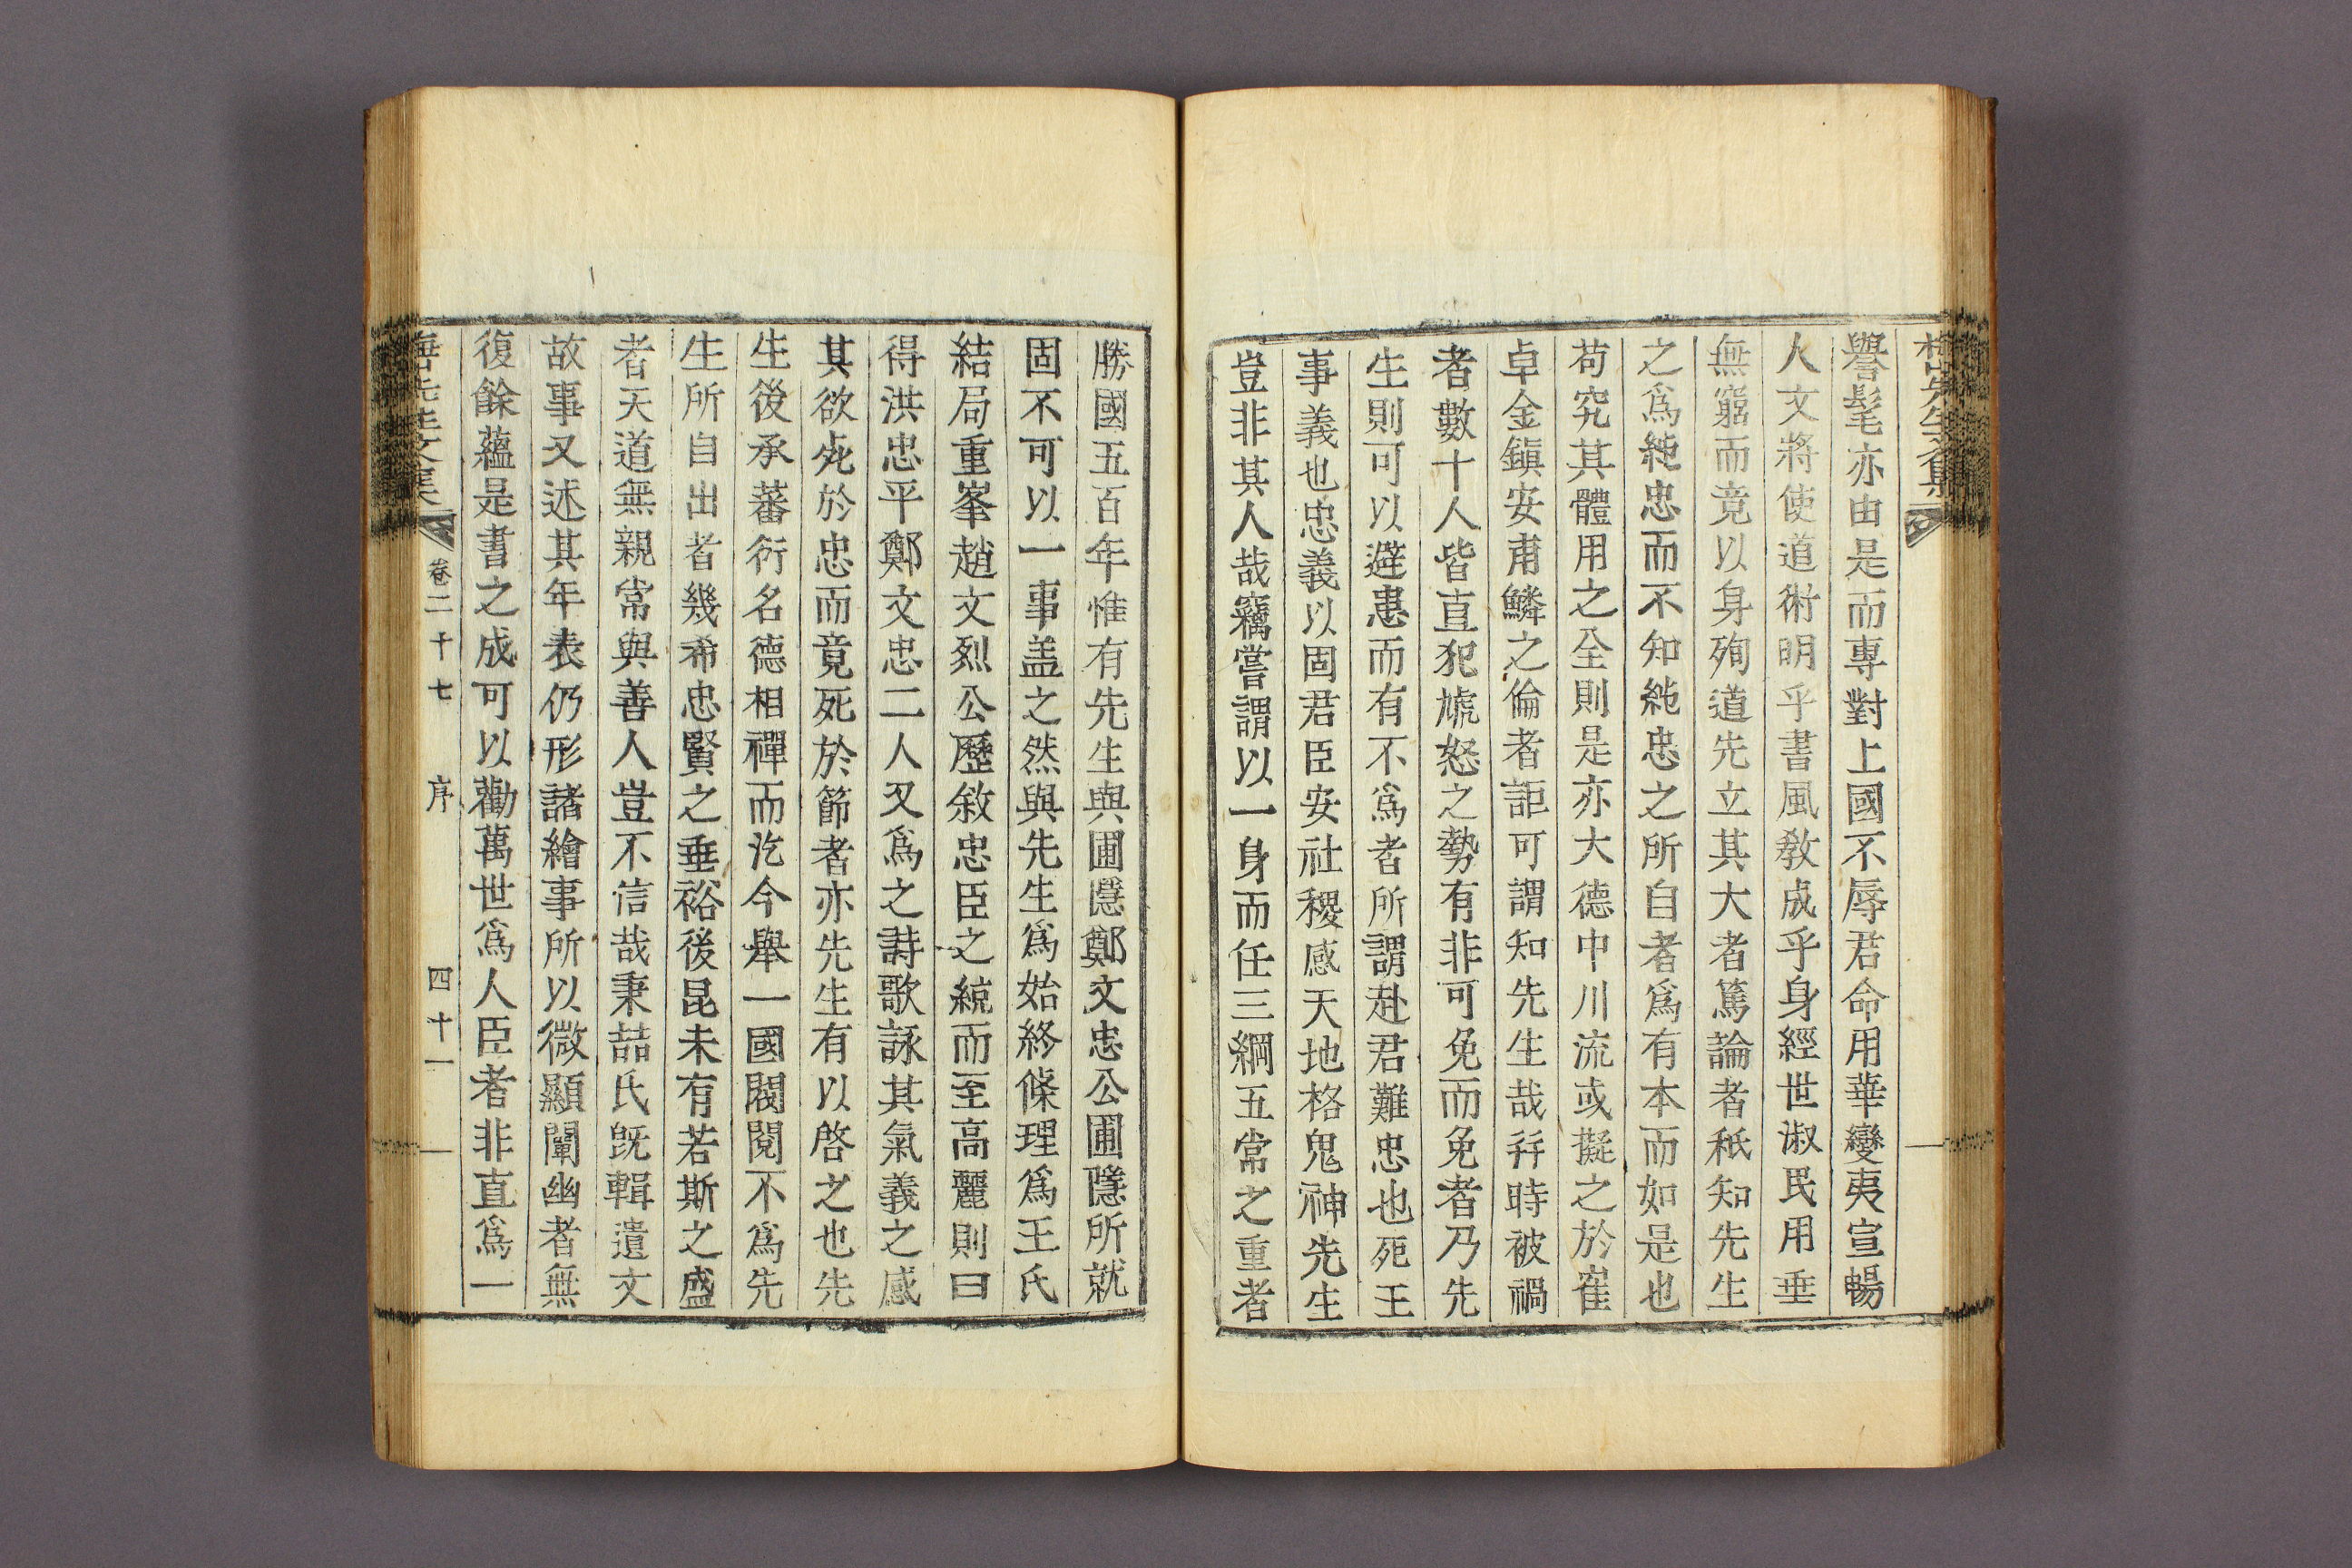 梅山先生文集
譽髦亦由是而專對上國不辱君命用華變夷宣暢
人文將使道術明乎書風敎成乎身經世淑民用垂
無窮而竟以身殉道先立其大者篤論者秖知先生
之爲純忠而不知純忠之所自者爲有本而如是也
苟究其體用之全則是亦大德中川流或擬之於崔
卓金鎭安甫鱗之倫者詎可謂知先生哉幷時被禍
者數十人皆直犯虓怒之勢有非可免而免者乃先
生則可以避患而有不爲者所謂赴君難忠也死王
事義也忠義以固君臣安社稷感天地格鬼神先生
豈非其人哉竊嘗謂以一身而任三綱五常之重者
勝國五百年惟有先生與圃隱鄭文忠公圃隱所就
固不可以一事盖之然與先生爲始終條理爲王氏
結局重峯趙文烈公歷敘忠臣之統而至高麗則曰
得洪忠平鄭文忠二人又爲之詩歌詠其氣義之感
其欲死於忠而竟死於節者亦先生有以啓之也先
生後承蕃衍名德相禪而汔今舉一國閥閱不爲先
生所自出者幾希忠賢之垂裕後昆未有若斯之盛
者天道無親常與善人豈不信哉秉喆氏旣輯遺文
故事又述其年表仍形諸繪事所以微顯闡幽者無
復餘蘊是書之成可以勸萬世爲人臣者非直爲一
梅山先生文集 卷二十七 序 四十一